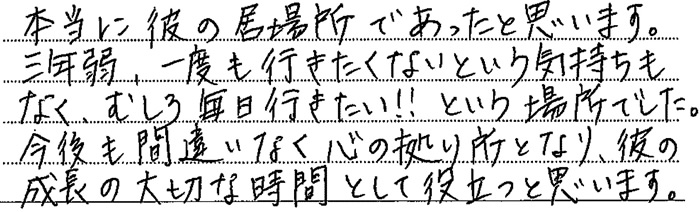 本当に彼の居場所であったと思います。
三年弱、一度も行きたくないという気持ちも
なく、むしろ毎日行きたい!!という場所でした。
今後も間違いなく心の拠り所となり、彼の
成長の大切な時間として役立つと思います。